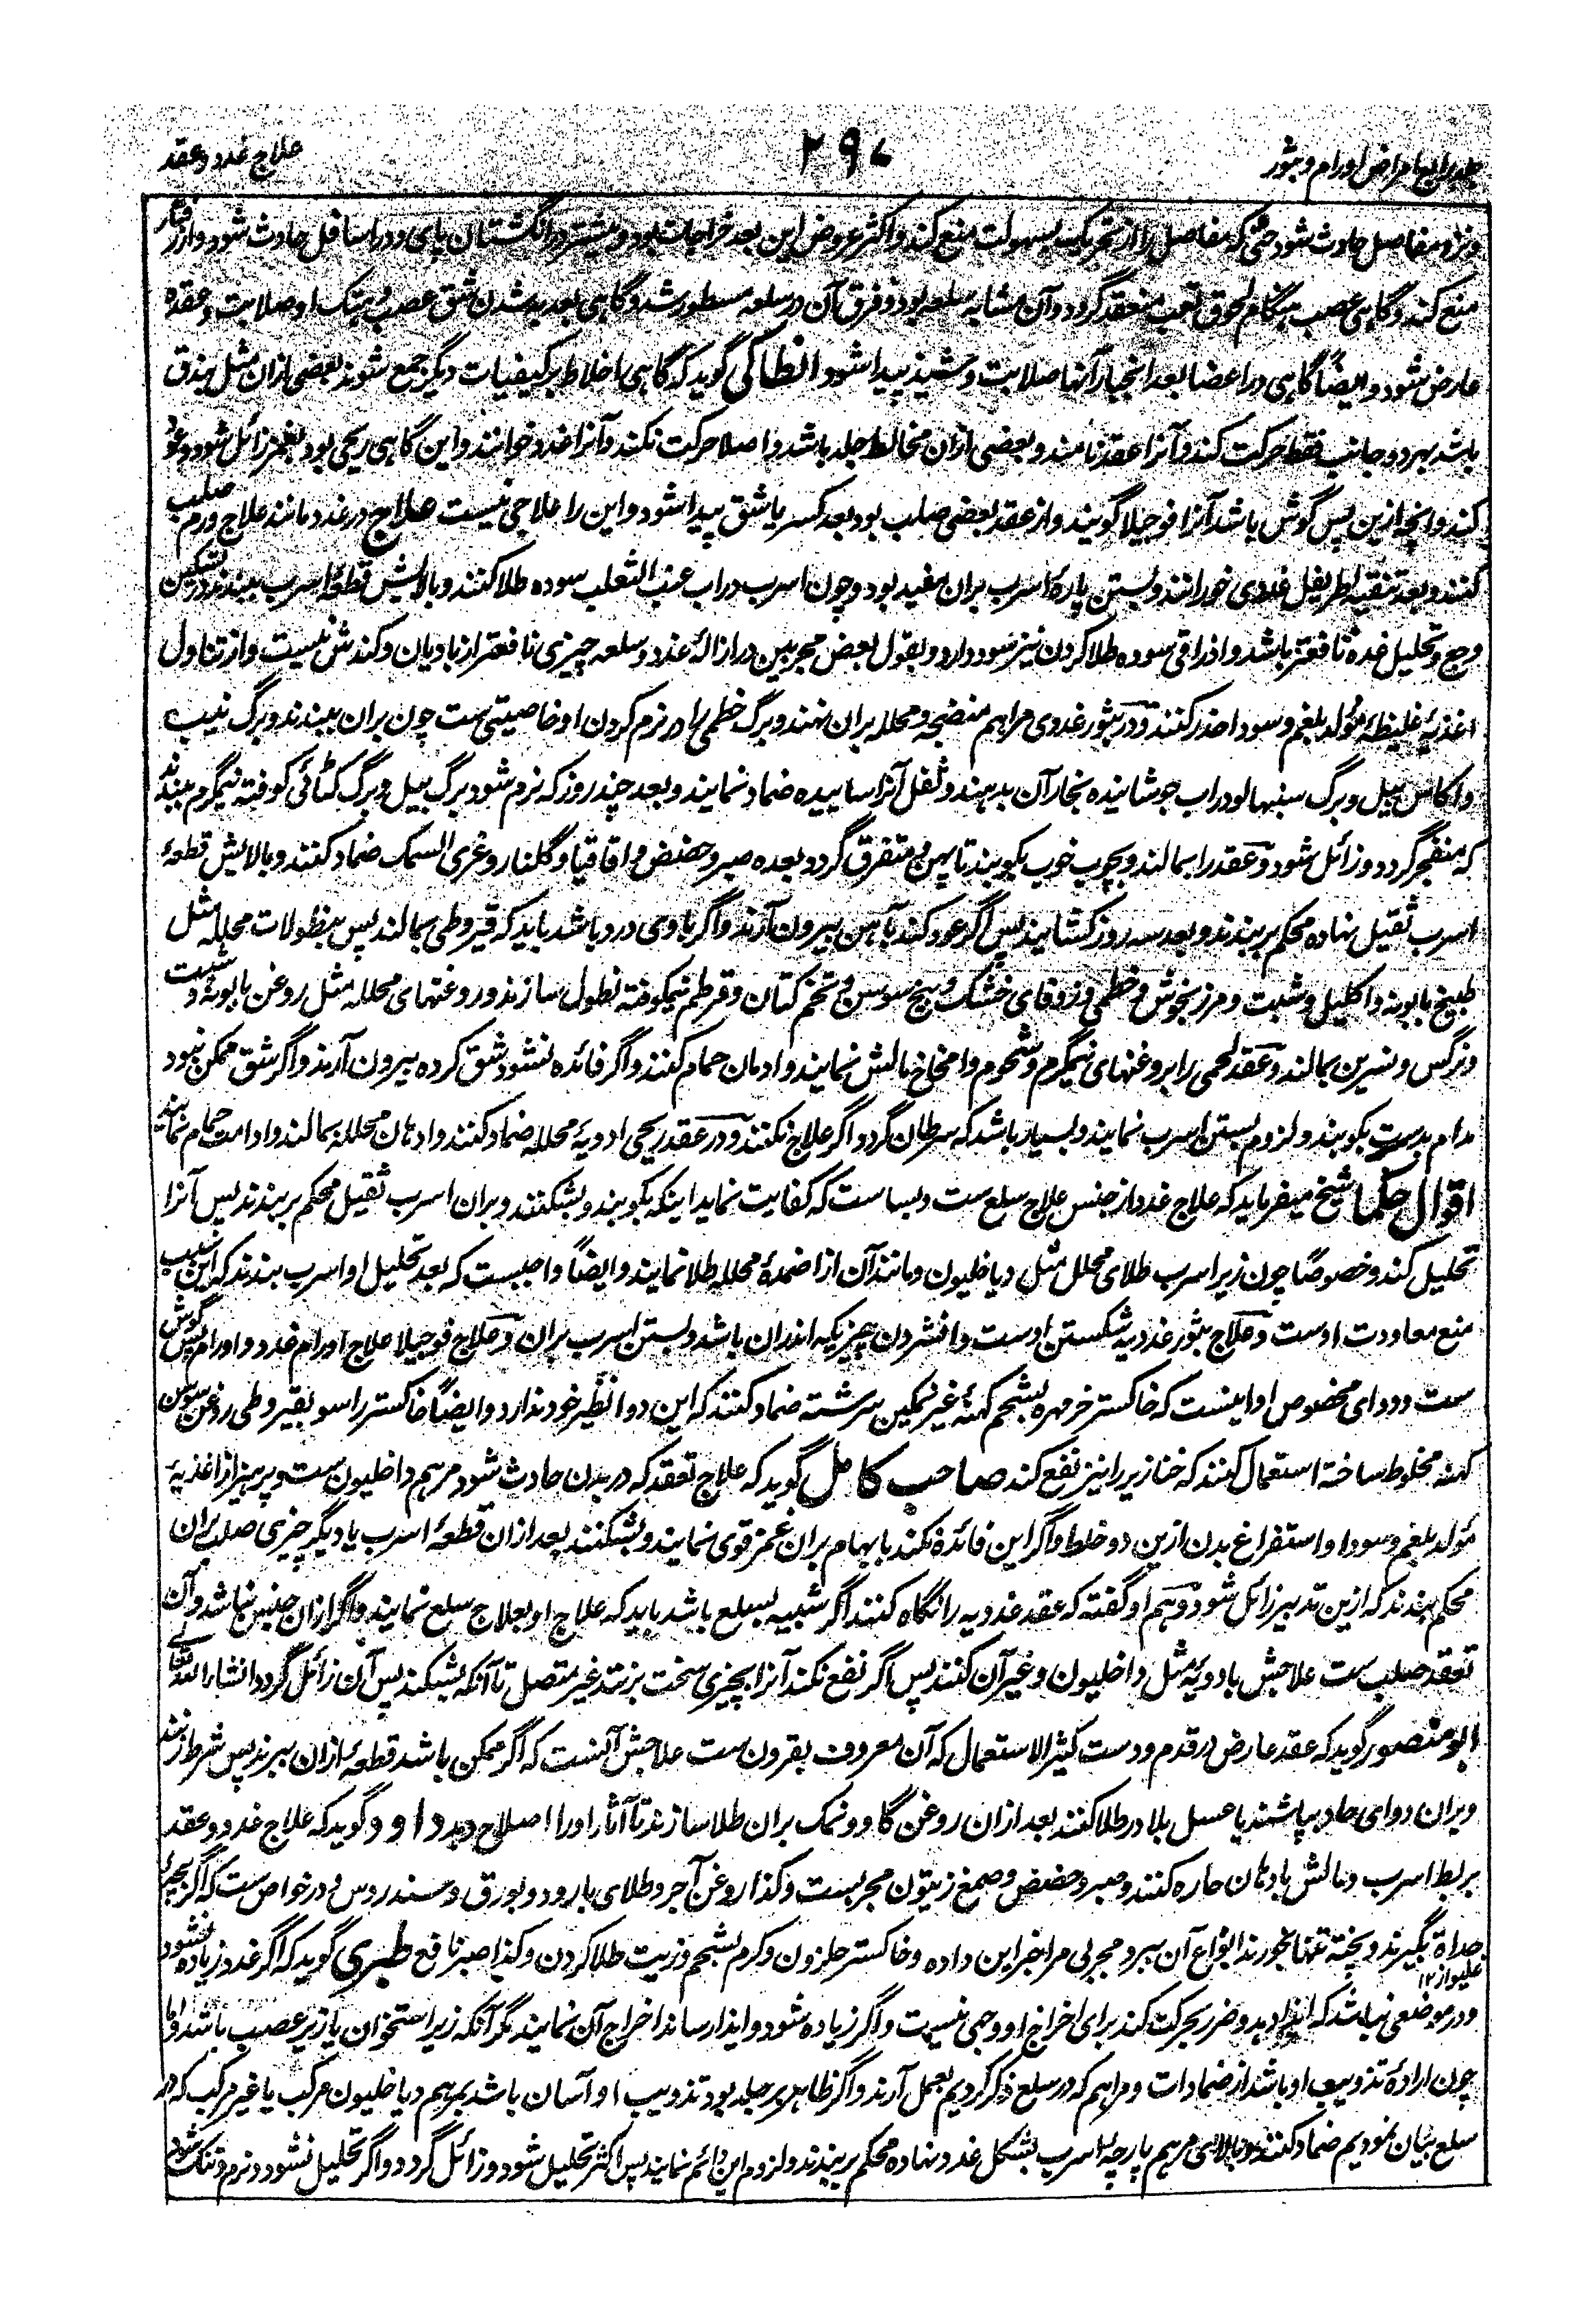 جلد رابع امراض اورام و بثور
۲۹۷
علاج غدد و عقد
و نزد مفاصل حادث شود حتی که مفاصل را از تحریک بسهولت منع کند و اکثر عروض این بعد خراجات بود و بیشتر در انگشتان پای و در اسافل حادث شود و از رفتار
منع کند و گاهی عصب هنگام لحوق تعب منعقد گردد و آن مشابه سلعه بود و فرق آن در سلعه مسطور شد و گاهی بعد به شدن شق عصب و هتک او صلابت و عقده
عارض شود و ایضاً گاهی در اعضا بعد انجبار آنها صلابت و شبذ پیدا شود انطاکی گوید که گاهی اخلاط بر کیفیات دیگر جمع شوند بعضی ازان مثل بندق
باشد بهر دو جانب فقط حرکت کند و آنرا عقد نامند و بعضی ازان مخالط جلد باشد و اصلا حرکت نکند و آنرا غدد خوانند و این گاهی ریحی بود بغمز زائل شود و عود
کند و انچه ازین پس گوش باشد آنرا فوجیلا گویند و از عقد بعضی صلب بود بعد کسر یا شق پیدا شود و این را علاجی نیست علاج در غدد مانند علاج ورم صلب
کنند و بعد تنقیه اطریفل غددی خورانند و بستن پارهٔ اسرب بران مفید بود و چون اسرب در اب عنب الثعلب سوده طلا کنند و بالایش قطعهٔ اسرب ببندند در تسکین
وجع و تحلیل غده نافعتر باشد و اذراقی سوده طلا کردن نیز سود دارد و بقول بعض مجربین در ازالهٔ غدد و سلعه چیزی نافعتر از بادیان و کندش نیست و از تناول
اغذیهٔ غلیظهٔ مولد بلغم و سودا حذر کنند و در بثور غددی مراهم منضجه و محلله بران نهند و برگ خطمی را در نرم کردن او خاصیتی ست چون بران ببندند و برگ نیب
و اکاس بیل و برگ سنبهالو در اب جوشانیده بخار آن بدهند و ثفل آنرا ساییده ضماد نمایند و بعد چند روز که نرم شود برگ بیل و برگ کٹائی کوفته نیمگرم ببندند
که منفجر گردد و زائل شود و عقد را بمالند و بچوب خوب بکوبند تا پهن و متفرق گردد بعده صبر و حضض و اقاقیا و گلنار و غری السمک ضماد کنند و بالایش قطعهٔ
اسرب ثقیل نهاده محکم بر بندند و بعد سه روز کشایند پس اگر عود کند بآهن بیرون آرند و اگر باوی درد باشد باید که قیروطی بمالند پس بنطولات محلله مثل
طبیخ بابونه و اکلیل و شبت و مرزنجوش و خطمی و زوفای خشک و بیخ سوسن و تخم کتان و قرطم نیمکوفته نطول سازند و روغنهای محلله مثل روغن بابونه و شبت
و نرگس و نسرین بمالند و عقد لحمی را بروغنهای نیمگرم و شحوم و امخاخ مالش نمایند و ادمان حمام کنند و اگر فائده نشود شق کرده بیرون آرند و اگر شق ممکن نبود
مدام بدست بکوبند و لزوم بستن اسرب نمایند و بسیار باشد که سرطان گردد اگر علاج نکنند و در عقد ریحی ادویهٔ محلله ضماد کنند و ادهان محلله بمالند و ادامت حمام نمایند
اقوال حکما شیخ میفرماید که علاج غدد از جنس علاج سلع ست و بسا ست که کفایت نماید اینکه بکوبند و بشکنند و بران اسرب ثقیل محکم بر بندند پس آنرا
تحلیل کند و خصوصاً چون زیر اسرب طلای محلل مثل دیاخلیون و مانند آن از اضمدهٔ محلله طلا نمایند و ایضاً واجبست که بعد تحلیل او اسرب بندند که این سبب
منع معاودت اوست و علاج بثور غددیه شکستن اوست و افشردن چیزیکه اندران باشد و بستن اسرب بران و علاج فوجیلا علاج اورام غدد و اورام پس گوش
ست و دوای مخصوص او اینست که خاکستر خرمهره بشحم کهنهٔ غیر نمکین سرشته ضماد کنند که این دوا نظیر خود ندارد و ایضاً خاکستر راسو بقیروطی روغن سوسن
کهنه مخلوط ساخته استعمال کنند که خنازیر را نیز نفع کند صاحب کامل گوید که علاج تعقد که در بدن حادث شود مرهم داخلیون ست و پرهیز از اغذیهٔ
مولد بلغم و سودا و استفراغ بدن ازین دو خلط و اگر این فائده نکند بابهام بران غمز قوی نمایند و بشکنند بعد ازان قطعهٔ اسرب یا دیگر چیزی صلب بران
محکم بندند که ازین تدبیر زائل شود و هم او گفته که عقد غددیه را نگاه کنند اگر شبیه بسلع باشد باید که علاج او بعلاج سلع نمایند و اگر ازان جنس نباشد و آن
تعقد صلب ست علاجش بادویه مثل داخلیون و غیر آن کنند پس اگر نفع نکند آنرا بچیزی سخت بزنند غیر متصل تا آنکه بشکند پس آن زائل گردد انشاء الله تعالی
ابو منصور گوید که عقد عارض در قدم و دست کثیر الاستعمال که آن معروف بقرون ست علاجش آنست که اگر ممکن باشد قطعهٔ ازان ببرند پس شرط زنند
و بران دوای حاد بپاشند یا عسل بلادر طلا کنند بعد ازان روغن گاو و نمک بران طلا سازند تا آثار او را اصلاح دهد داود گوید که علاج غدد و عقد
بربط اسرب و مالش بادهان حاره کنند و صبر و حضض و صمغ زیتون مجربست و کذا روغن آجر و طلای بارود و بورق و سندروس و در خواص ست که اگر بچهٔ
حداة بگیرند و پخته تنها بخورند انواع آن ببرد و مجربی مرا خبر این داده و خاکستر حلزون و کرم بشحم و زیت طلا کردن و کذا صبر نافع طبری گوید که اگر غدد زیاده نشود
غلیواز ۱۲
و در موضعی نباشد که ایذا دهد و ضرر بحرکت کند برای اخراج او وجهی نیست و اگر زیاده شود و ایذا رساند اخراج آن نمایند مگر آنکه زیر استخوان یا زیر عصب باشد و اما
چون ارادهٔ تذویب او باشد از ضمادات و مراهم که در سلع ذکر کردیم بعمل آرند و اگر ظاهر بر جلد بود تذویب او آسان باشد بمرهم دیاخلیون مرکب یا غیر مرکب که در
سلع بیان نمودیم ضماد کنند و بالای مرهم پارچهٔ اسرب بشکل غدد نهاده محکم بر بندند و لزوم این دائم نمایند پس اکثر تحلیل شود و زائل گردد و اگر تحلیل نشود و نرم و تنک شود